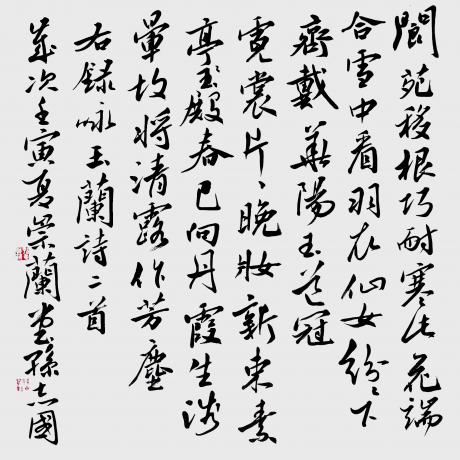 閬苑移根巧耐寒此花端
合雪中看羽衣仙女紛〻下
齊戴華陽玉道冠
霓裳片〻晚妝新束素
亭〻玉殿春已向丹霞生淺
暈故將清露作芳塵
右録咏玉蘭詩二首
歲次壬寅夏崇蘭堂孫志國